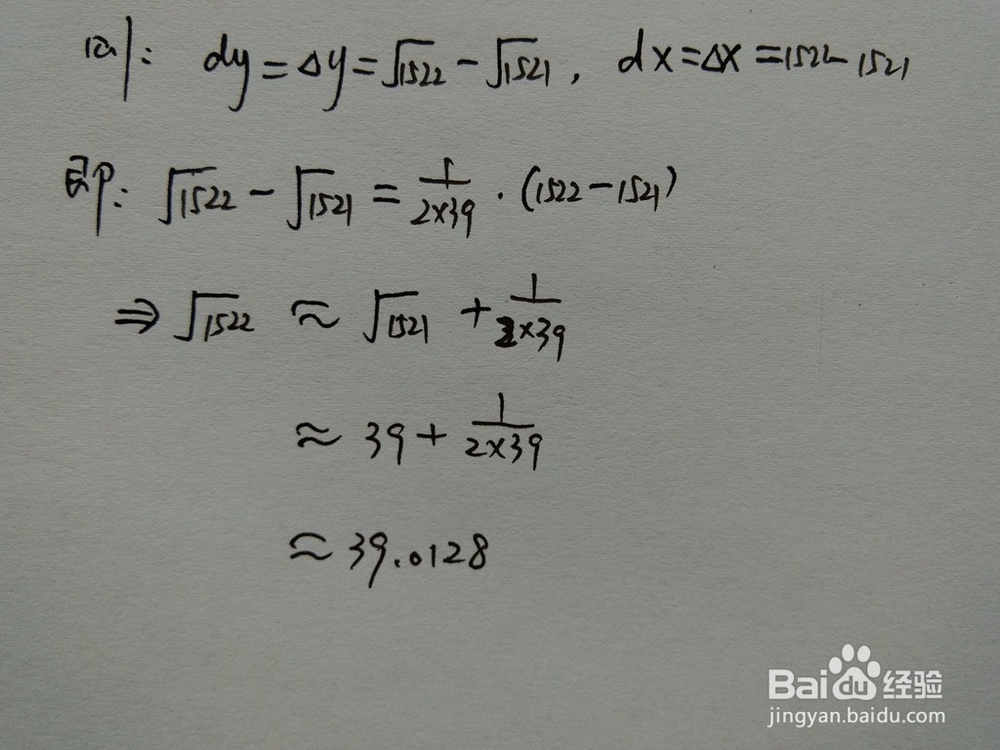 则: dy=Δy=√1522-√1521, dx=Δx=1522-1521
即: √1522-√1521=1/(2×39)·(1522-1521)
⇒√1522≈√1521+1/(2×39)
≈39+1/(2×39)
≈39.0128
Baidu经验
jingyan.baidu.com